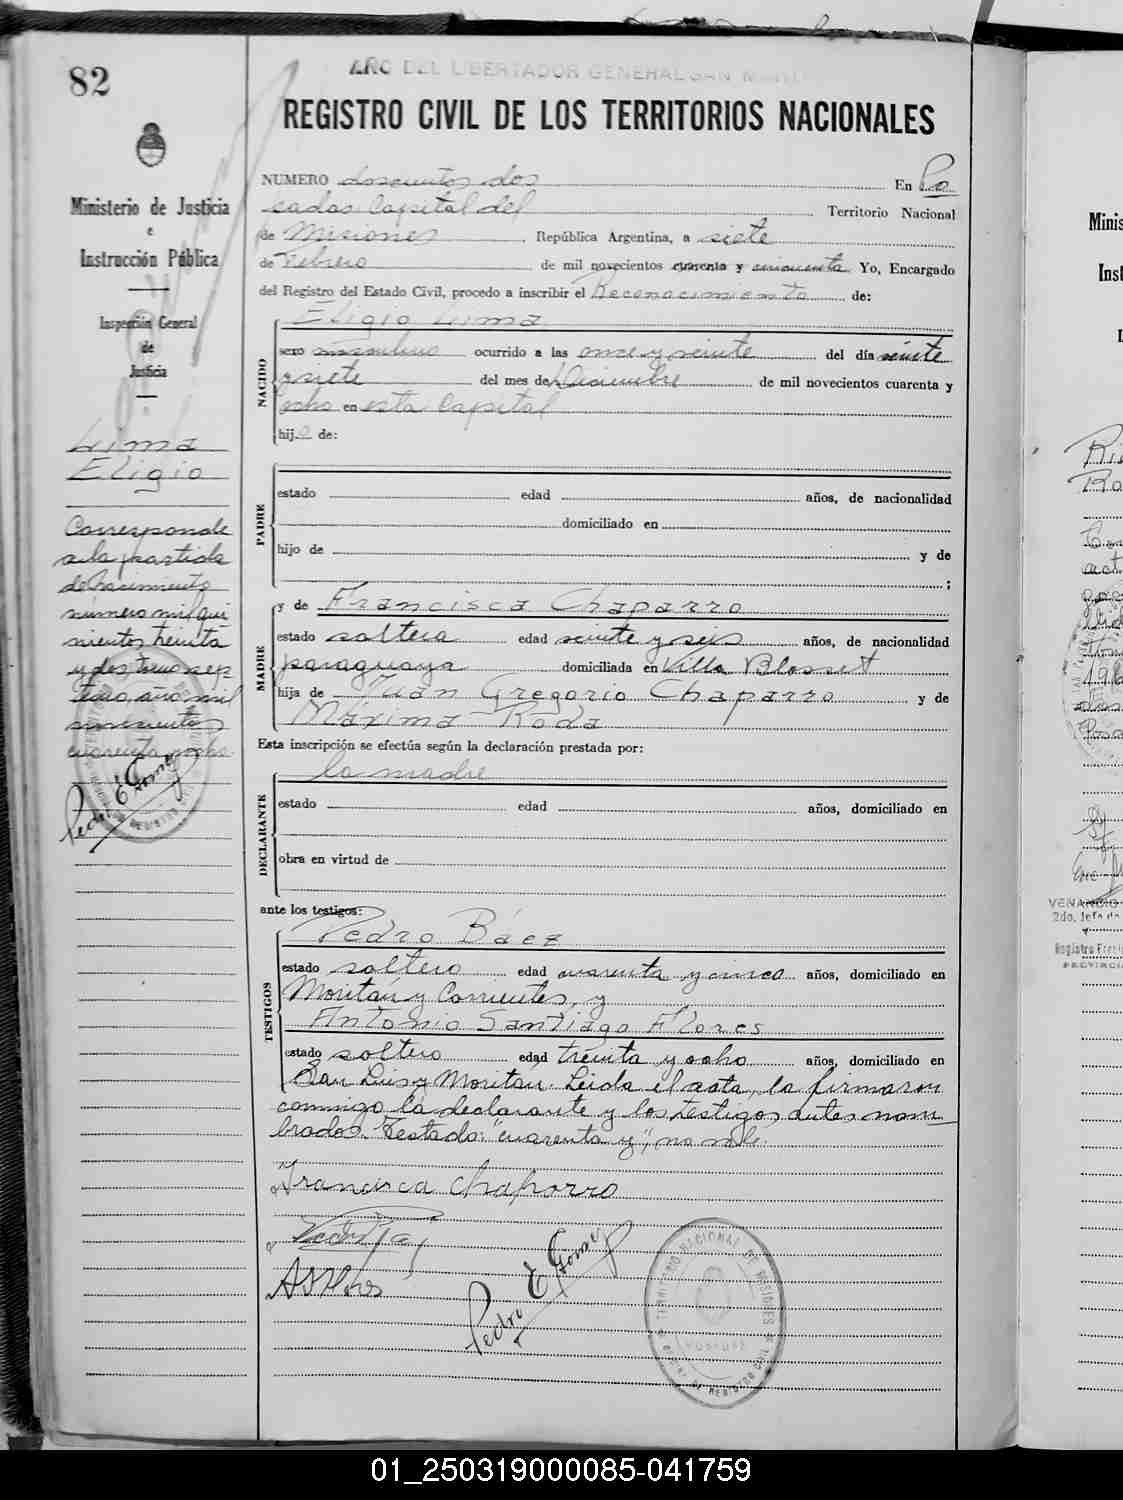 82
AÑO DEL LIBERTADOR GENERAL SAN
REGISTRO CIVIL DE LOS TERRITORIOS NACIONALES
Ministerio de Justicia
e
Instrucción Pública
Inspección General
de
Justicia
Lima
Eligio
Corresponde
a la partida
de Nacimiento
número mil qui
nientos treinta
y dos, tomo sép
timo, año mil
novecientos
cuarenta y ocho
Pedro E Gomez
NUMERO doscientos dos En Po
sadas Capital del Territorio Nacional
de Misiones República Argentina, a siete
de Febrero de mil novecientos cuarenta y cincuenta Yo, Encargado
del Registro del Estado Civil, procedo a inscribir el Reconocimiento de:
Eligio Lima
NACIDO
sexo masculino ocurrido a las once y veinte del día veinte
y siete del mes de Diciembre de mil novecientos cuarenta y
ocho en esta Capital
hijo de:
PADRE
estado edad años, de nacionalidad
domiciliado en
hijo de y de
;
MADRE
y de Francisca Chaparro
estado soltera edad veinte y seis años, de nacionalidad
paraguaya domiciliada en Villa Blosset
hija de Juan Gregorio Chaparro y de
Máxima Roda
Esta inscripción se efectúa según la declaración prestada por:
la madre
DECLARANTE
estado edad años, domiciliado en
obra en virtud de
ante los testigos:
TESTIGOS
Pedro Báez
estado soltero edad cuarenta y cinco años, domiciliado en
Moritán y Corrientes, y
Antonio Santiago Flores
estado soltero edad treinta y ocho años, domiciliado en
San Luis y Moritán. Leída el acta, la firmaron
conmigo la declarante y los testigos antes nom
brados. Testado: "cuarenta y", no vale.
Francisca Chaparro
Pedro E Gomez
TERRITORIO NACIONAL DE MISIONES
01_250319000085-041759